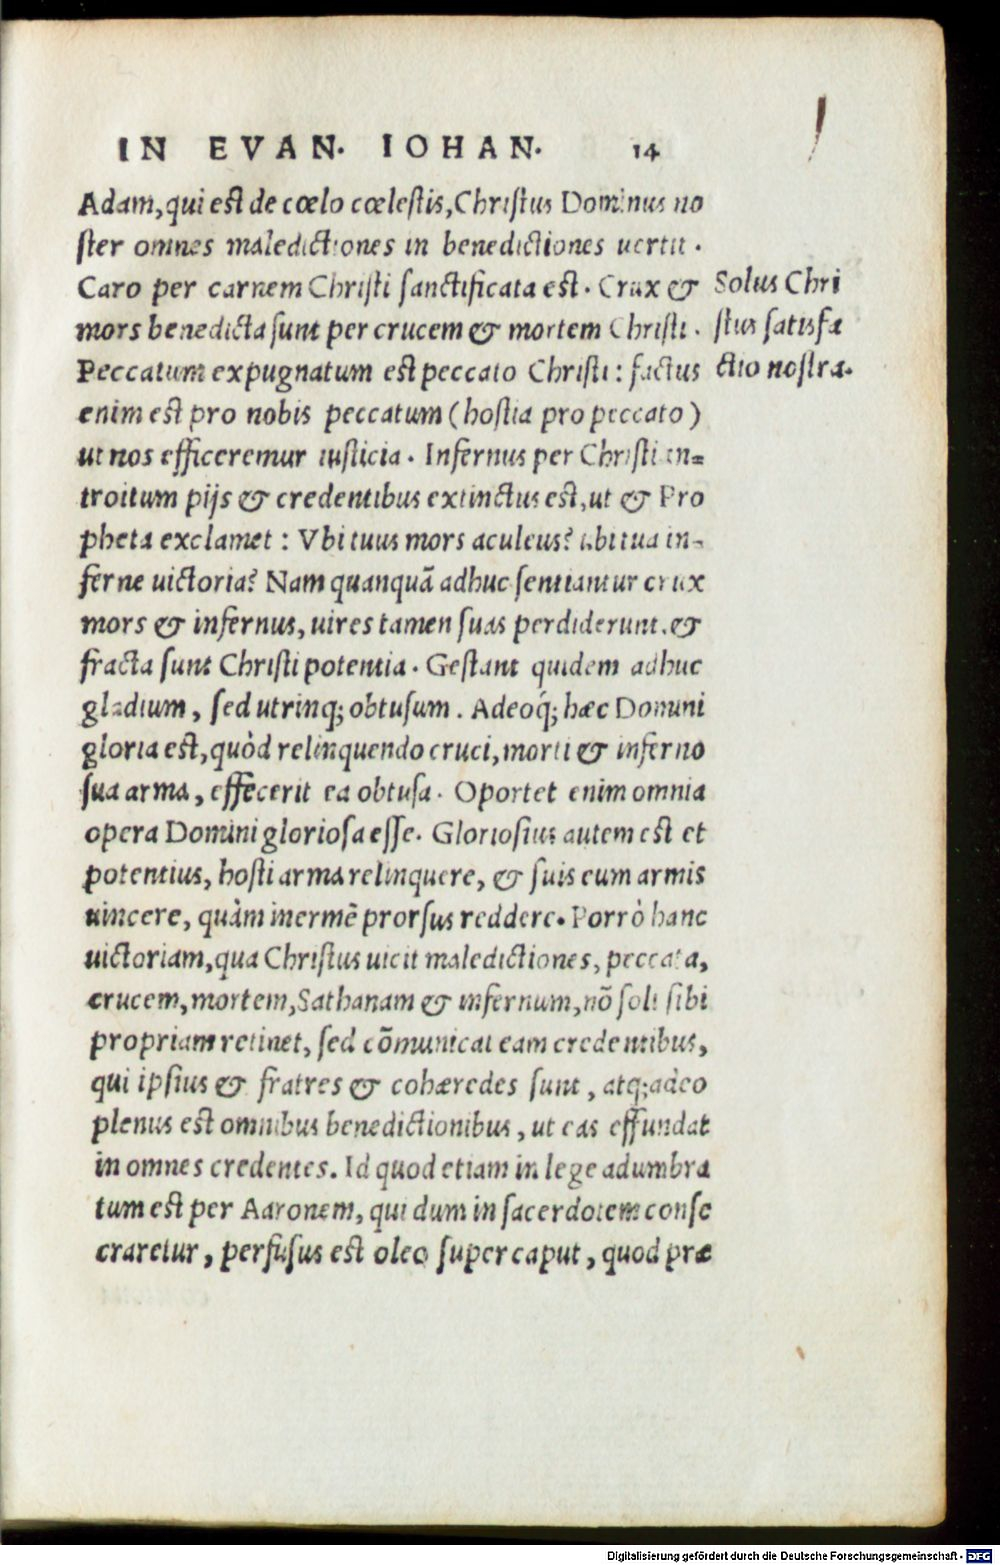 IN EVAN. IOHAN. 14
Adam, qui est de cœlo cœlestis, Christus Dominus no
ster omnes maledictiones in benedictiones uertit.
Caro per carnem Christi sanctificata est. Crux &
mors benedicta sunt per crucem & mortem Christi.
Peccatum expugnatum est peccato Christi: factus
enim est pro nobis peccatum (hostia pro peccato)
ut nos efficeremur iusticia. Infernus per Christi in=
troitum pijs & credentibus extinctus est, ut & Pro
pheta exclamet: Vbi tuus mors aculeus? ubi tua in-
ferne uictoria? Nam quanquā adhuc sentiantur crux
mors & infernus, uires tamen suas perdiderunt, &
fracta sunt Christi potentia. Gestant quidem adhuc
gladium, sed utrinq; obtusum. Adeoq́; hæc Domini
gloria est, quòd relinquendo cruci, morti & inferno
sua arma, effecerit ea obtusa. Oportet enim omnia
opera Domini gloriosa esse. Gloriosius autem est et
potentius, hosti arma relinquere, & suis eum armis
uincere, quàm inermē prorsus reddere. Porrò hanc
uictoriam, qua Christus uicit maledictiones, peccata,
crucem, mortem, Sathanam & infernum, nō soli sibi
propriam retinet, sed cōmunicat eam credentibus,
qui ipsius & fratres & cohæredes sunt, atq; adeo
plenus est omnibus benedictionibus, ut eas effundat
in omnes credentes. Id quod etiam in lege adumbra
tum est per Aaronem, qui dum in sacerdotem conse
craretur, perfusus est oleo super caput, quod præ
Solus Chri
stus satisfa
ctio nostra.
Digitalisierung gefördert durch die Deutsche Forschungsgemeinschaft - DFG